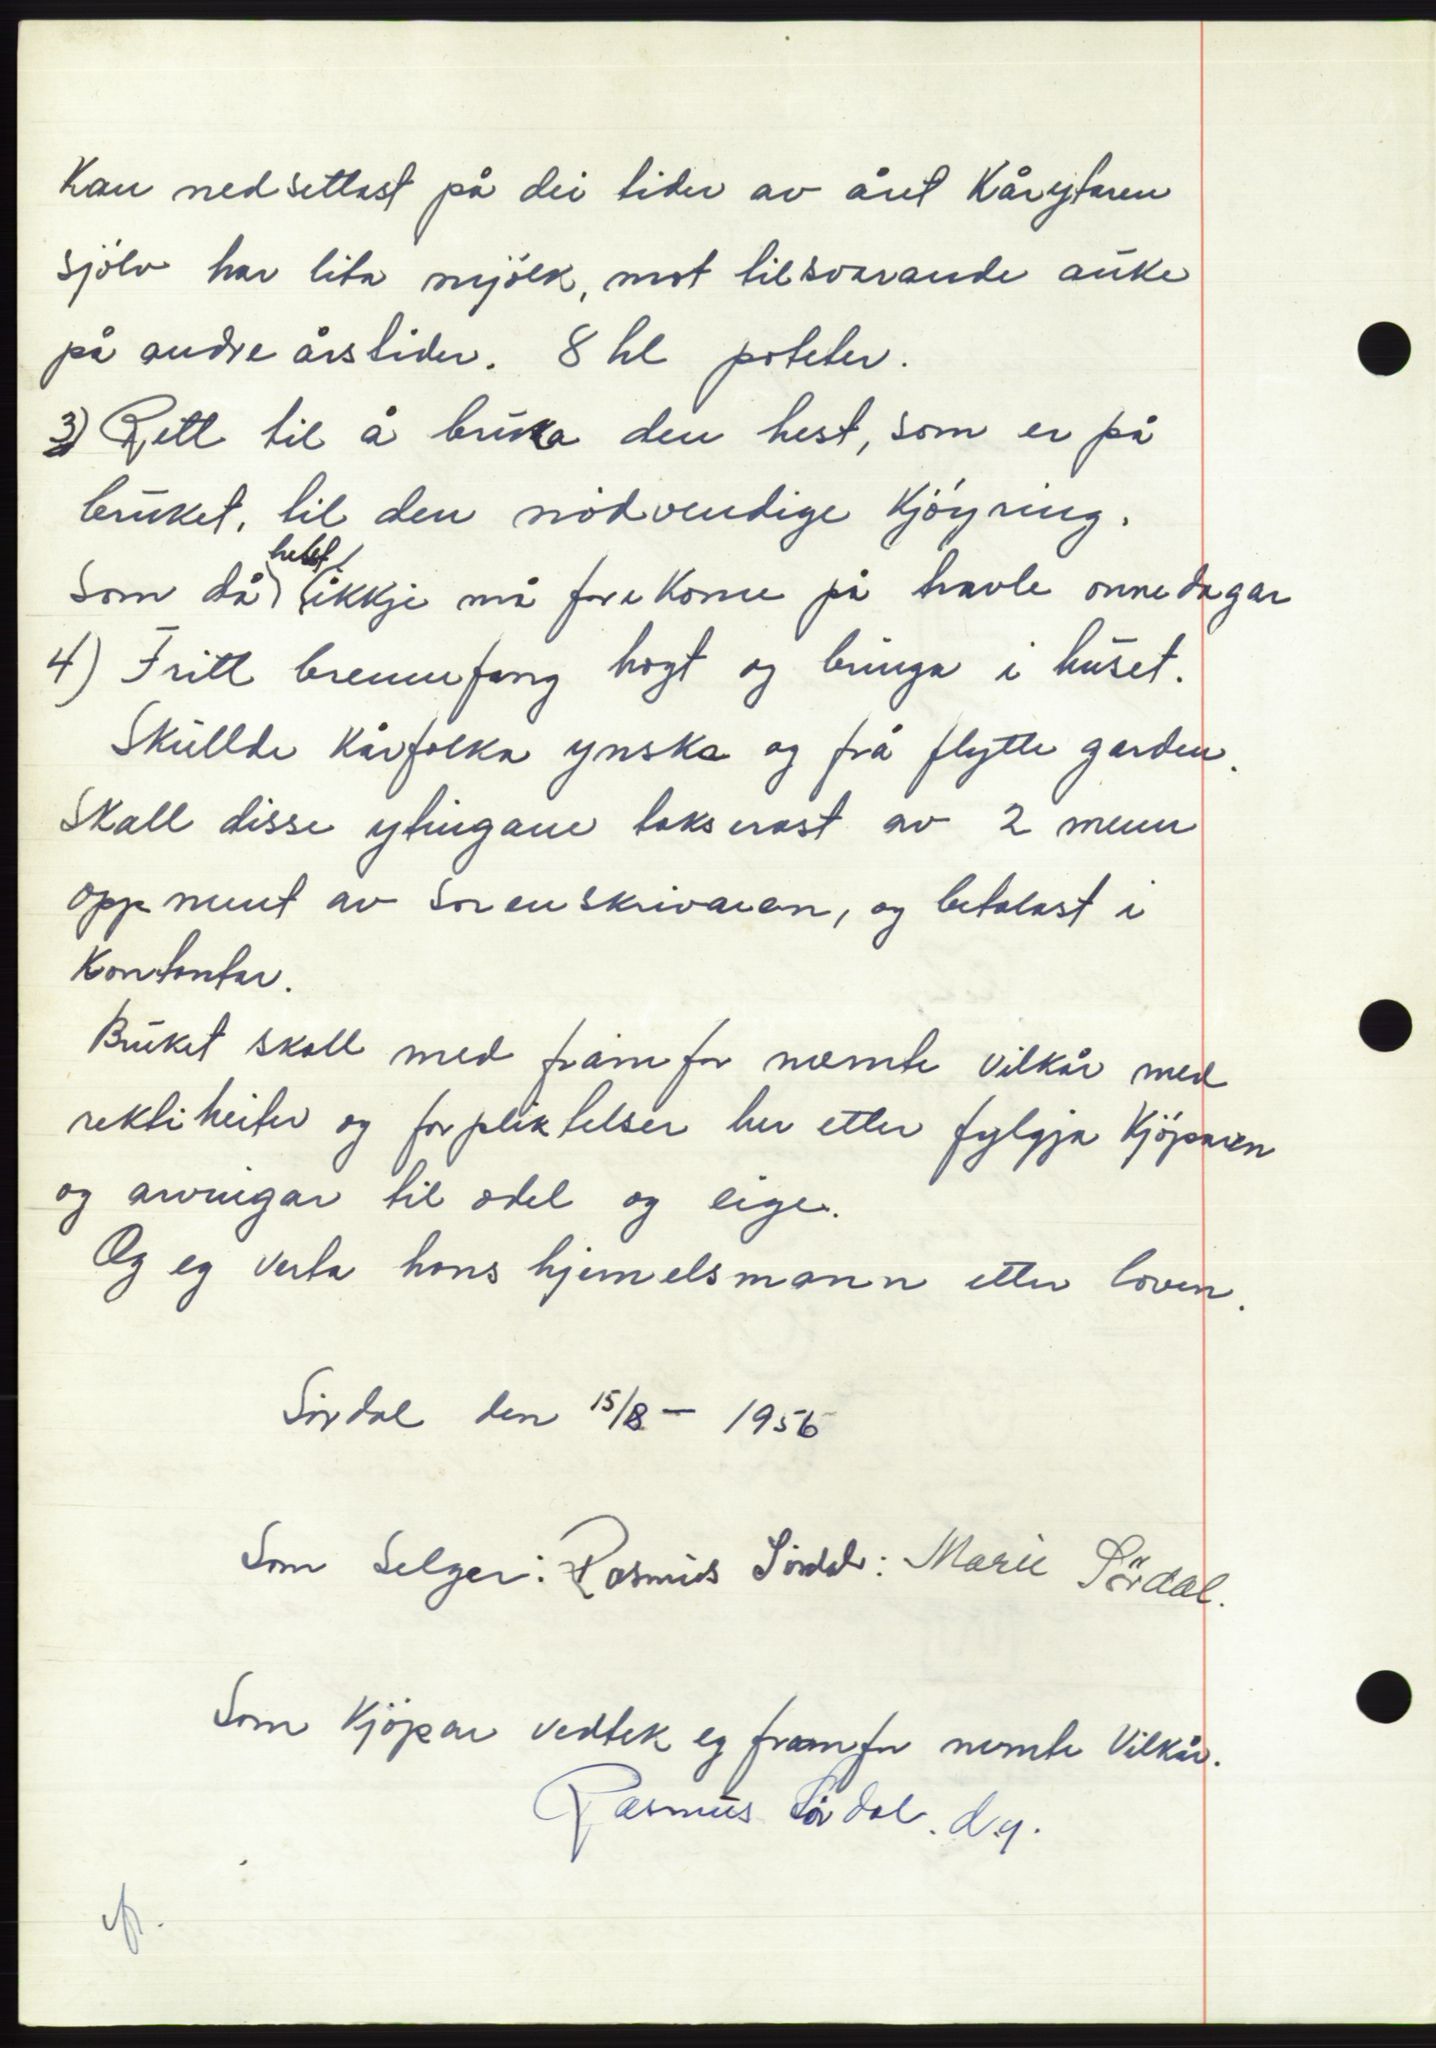 Kan nedsettast på dei tider av året Kårytaren
sjölv har lita mjölk, mot tilsvarande auke
på andre årstider. 8 hl poteter.
3) Rett til å bruka den hest, som er på
bruket, til den nödvendige Kjöyring.
helst
Som då ikkje må forekome på travle onnedagar
4) Fritt brennefang hogt og bringa i huset.
Skullde Kårfolka ynska og frå flytte garden.
Skall disse ytingane takserast av 2 menn
oppnemt av Sorenskrivaren, og betalast i
Kontantar.
Bruket skall med framfor nemte vilkår med
rektiheiter og forpliktelser her etter fylgja Kjöparen
og arvingar til odel og eige.
Og eg verta hans hjemelsmann etter loven.
Sördal den 15/8 - 1956
Som Selger: Rasmus Sördal: Marie Sördal.
Som Kjöpar vedtek eg framfor nemte Vilkår.
Rasmus Sördal. d.y.